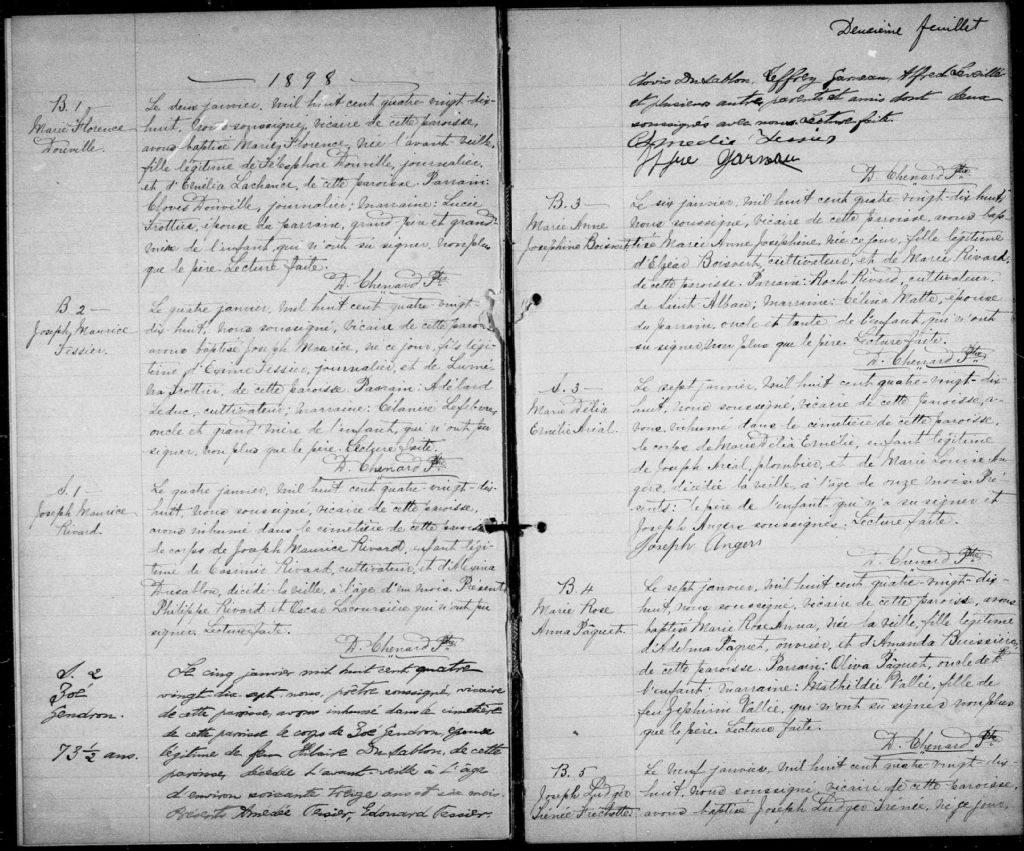 1898
B. 1
Marie Florence
Douville.
Le deux janvier, mil huit cent quatre-vingt-dix-
huit, nous soussigné, vicaire de cette paroisse,
avons baptisé Marie Florence, née l'avant-veille,
fille légitime de Télesphore Douville, journalier,
et d'Emélia Lachance, de cette paroisse. Parrain:
Clovis Douville, journalier; marraine: Lucie
Trottier, épouse du parrain, grand père et grand-
mère de l'enfant, qui n'ont su signer, non plus
que le père. Lecture faite.
D. Chenard Ptre
B. 2
Joseph Maurice
Tessier.
Le quatre janvier, mil huit cent quatre-vingt-
dix-huit, nous soussigné, vicaire de cette paroisse
avons baptisé Joseph Maurice, né ce jour, fils légi-
time d'Exime Tessier, journalier, et de Lumi-
na Trottier, de cette paroisse. Parrain: Adélard
Leduc, cultivateur; marraine: Lefebvre,
oncle et grand'mère de l'enfant, qui n'ont pu
signer, non plus que le père. Lecture faite.
D. Chenard Ptre
S. 1
Joseph Maurice
Rivard.
Le quatre janvier, mil huit cent quatre-vingt-dix-
huit nous soussigné, vicaire de cette paroisse,
avons inhumé dans le cimetière de cette paroisse
le corps de Joseph Maurice Rivard, enfant légi-
time de Casimir Rivard, cultivateur, et d'Alexina
Dusablon, décédé la veille, à l'âge d'un mois. Présents
Philippe Rivard et Oscar Lacoursière qui n'ont pu
signer. Lecture faite.
D. Chenard Ptre
S. 2
Zoé
Gendron.
73 1/2 ans.
Le cinq janvier mil huit cent quatre
vingt dix sept nous, prêtre soussigné, vicaire
de cette paroisse, avons inhumé dans le cimetière
de cette paroisse le corps de Zoé Gendron épouse
légitime de feu Hilaire Dusablon, de cette
paroisse, décédée l'avant-veille à l'âge
d'environ soixante treize ans et six mois.
Présents Amédée Tessier, Edouard Tessier.
Deuxième feuillet
Clovis Dusablon, Jeffrey Garneau, Alfred Leveille
et plusieurs autres parents et amis dont deux
soussignés avec nous. Lecture faite.
Tessier
Jffre Garneau
D. Chenard Ptre
B. 3
Marie Anne
Joséphine Boisvert
Le six janvier, mil huit cent quatre-vingt-dix-huit,
nous soussigné, vicaire de cette paroisse, avons bap-
tisé Marie Anne Joséphine, née ce jour, fille légitime
d'Elzéad Boisvert, cultivateur, et de Marie Rivard,
de cette paroisse. Parrain: Roch Rivard, cultivateur,
de Saint Alban; marraine: Célina Matte, épouse
du parrain, oncle et tante de l'enfant, qui n'ont
su signer, non plus que le père. Lecture faite.
D. Chenard Ptre
S. 3
Marie Délia
Emélie Arial.
Le sept janvier, mil huit cent quatre-vingt-dix-
huit, nous soussigné, vicaire de cette paroisse, a-
vons inhumé dans le cimetière de cette paroisse,
le corps de Marie Délia Emélie, enfant légitime
de Joseph Arial, plombier, et de Marie Louise An-
gers, décédée la veille, à l'âge de onze mois. Pré-
sents: le père de l'enfant qui n'a su signer et
Joseph Angers soussignés. Lecture faite.
Joseph Angers
D. Chenard Ptre
B. 4
Marie Rose
Anna Pâquet.
Le sept janvier, mil huit cent quatre-vingt-dix-
huit, nous soussigné, vicaire de cette paroisse, avons
baptisé Marie Rose Anna, née la veille, fille légitime
d'Adelma Pâquet, ouvrier, et d'Amanda Buissière,
de cette paroisse. Parrain: Oliva Pâquet, oncle de
l'enfant; marraine: Mathildée Vallée, fille de
feu Zéphirin Vallée, qui n'ont su signer non plus
que le père. Lecture faite.
D. Chenard Ptre
B. 5
Joseph Ludger
Irénée Frechette.
Le neuf janvier, mil huit cent quatre-vingt-dix-
huit, nous soussigné, vicaire de cette paroisse,
avons baptisé Joseph Ludger Irénée, né ce jour,